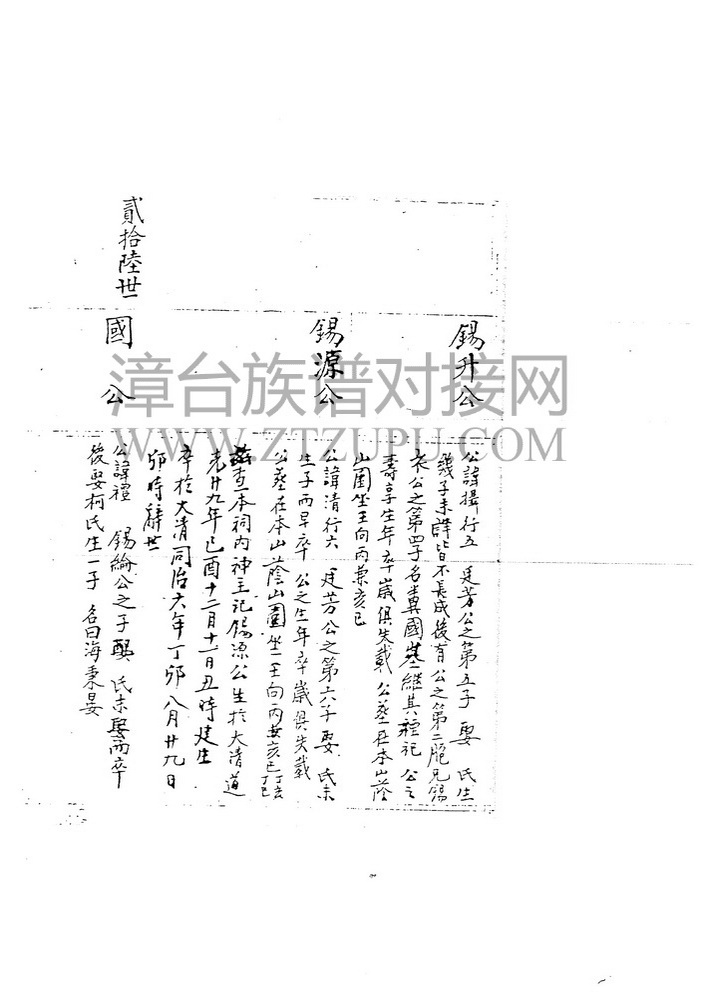 錫升公
公諱攝行五 廷芳公之第五子 娶 氏生
幾子未詳皆不長成後有公之第二胞兄錫
衣公之第四子名冀國基繼其禋祀 公之
壽享生年卒歲俱失載 公葬在本山蔭
山園坐壬向丙兼亥巳
錫源公
公諱清行六 廷芳公之第六子 娶 氏未
生子而早卒 公之生年卒歲俱失載
公葬在本山蔭山園坐壬向丙兼亥巳丁亥丁巳
茲查本祠内神主記錫源公生於大清道
光廿九年己酉十二月十一日丑時建生
卒於大清同治六年丁卯八月廿九日
卯時辭世
貳拾陸世
國 公
公諱禮 錫綸公之子 娶 氏未娶而卒
後娶柯氏生一子 名曰海秉晏
漳台族谱对接网
WWW.ZTZUPU.COM